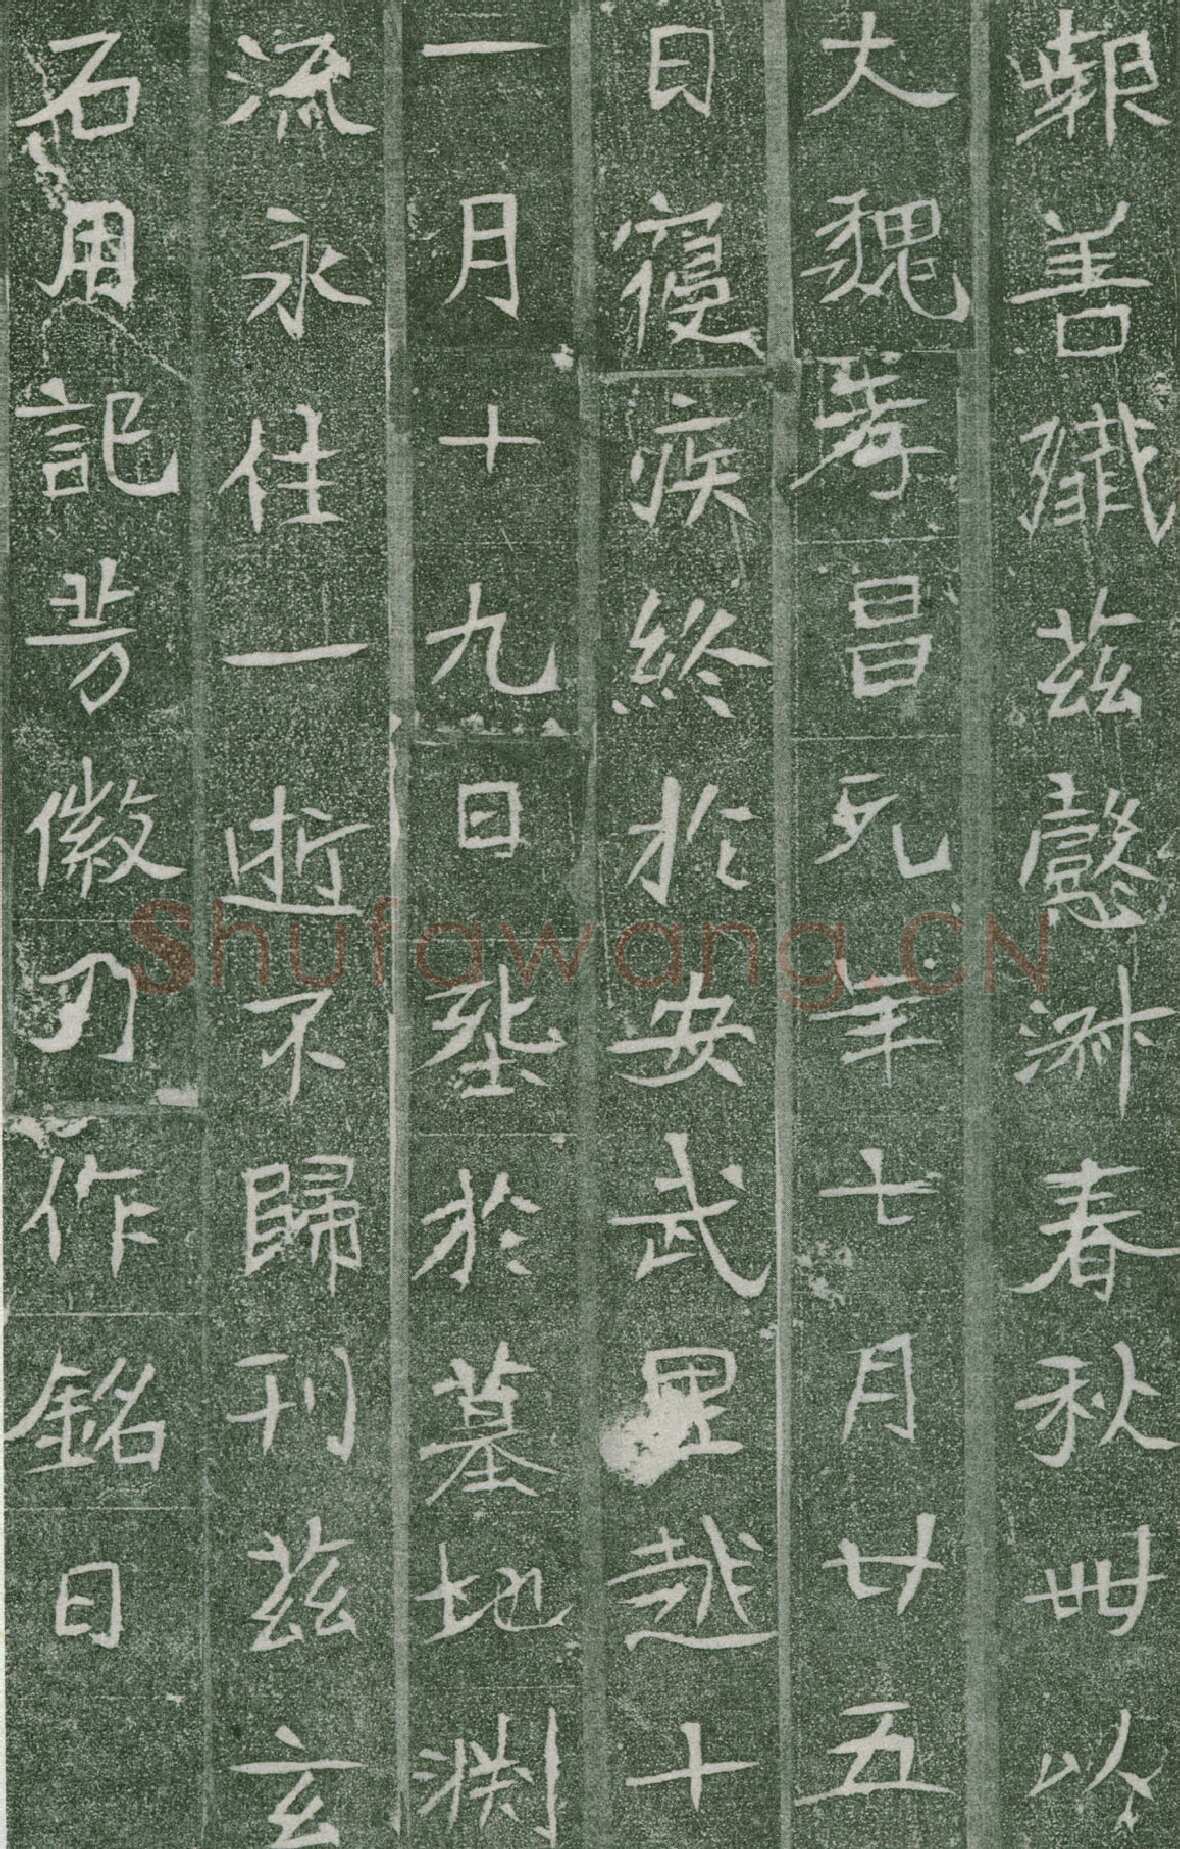 報善殲茲懿淑春秋卌以
大魏孝昌元年七月廿五
日寑疾終於安武里越十
一月十九日塟於墓地淵
流永住一逝不歸刊茲玄
石用記芳徽乃作銘曰
Shufawang.CN